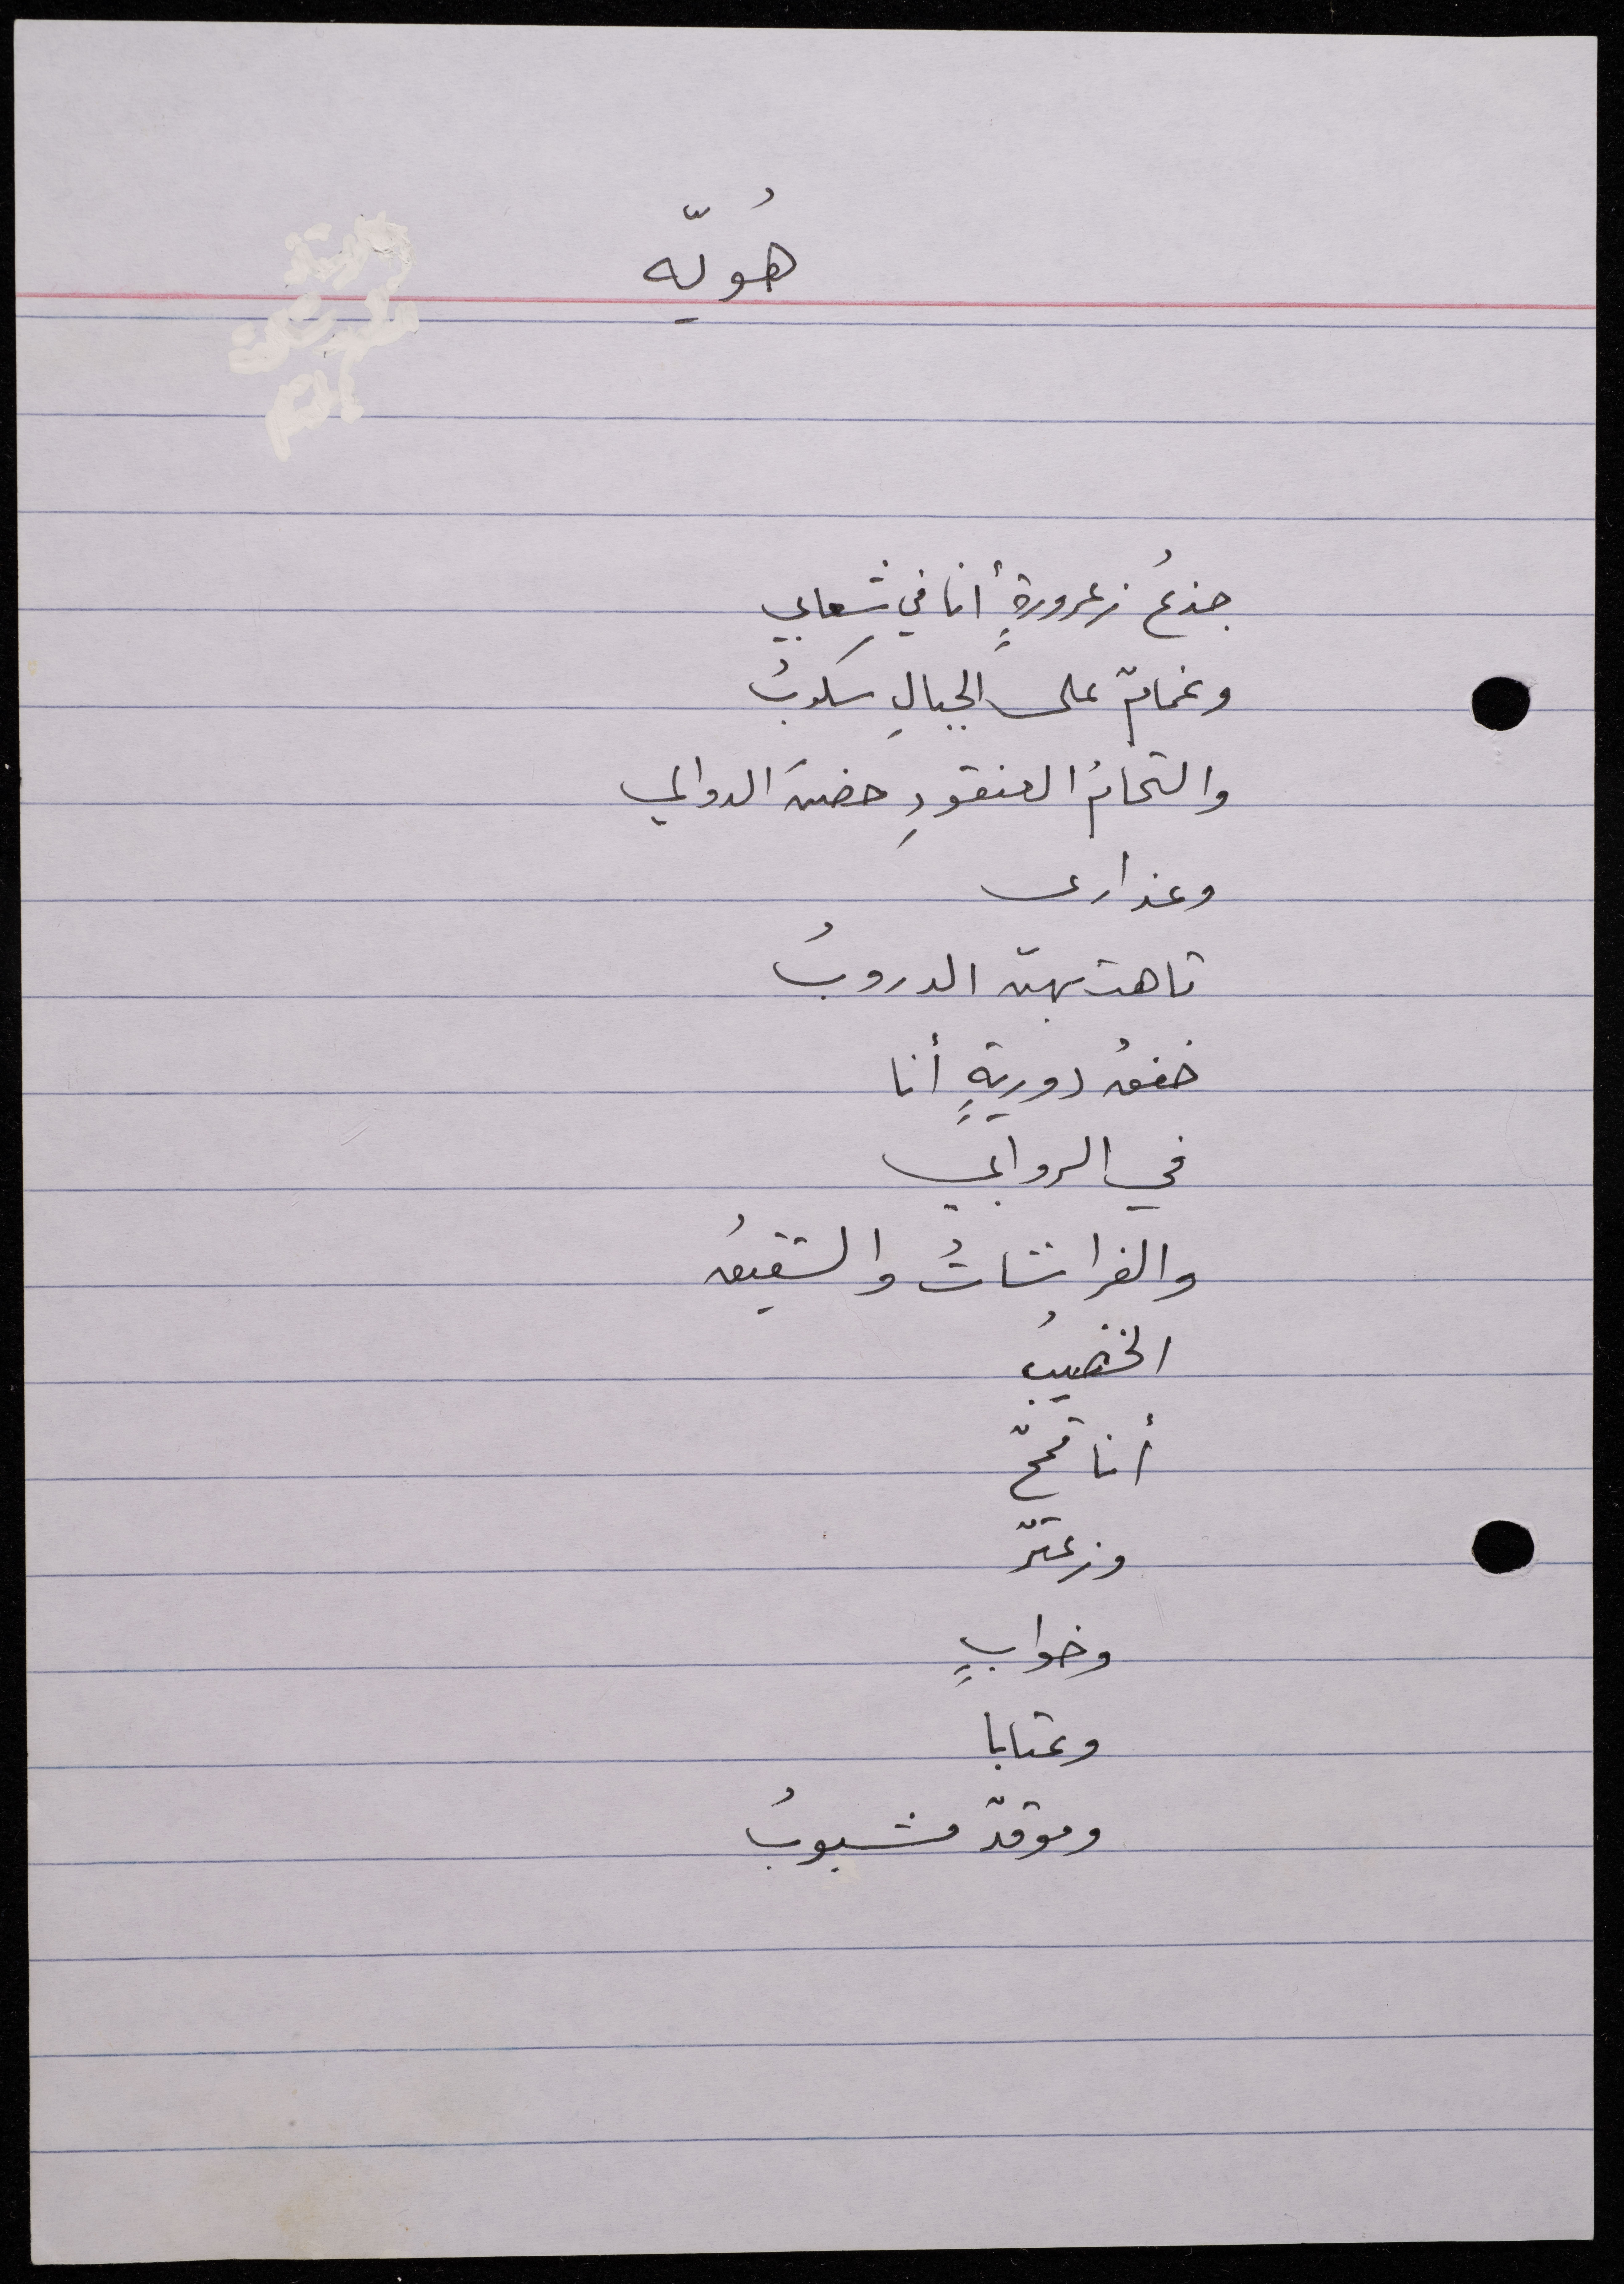 هُويّه
جذعُ زعرورةٍ أنا في شِعابي
وغمامٌ على الجبالِ سكوبُ
والتحامُ العنقودِ حضنَ الدوالي
وعذارى
تاهت بهنّ الدروبُ
خفقُ دوريةٍ أنا
في الروابي
والفراشاتُ والشقيقُ
الخضيبُ
أنا قمحٌ
وزعترٌ
وخوابٍ
وعتابا
وموقدٌ مشبوبُ